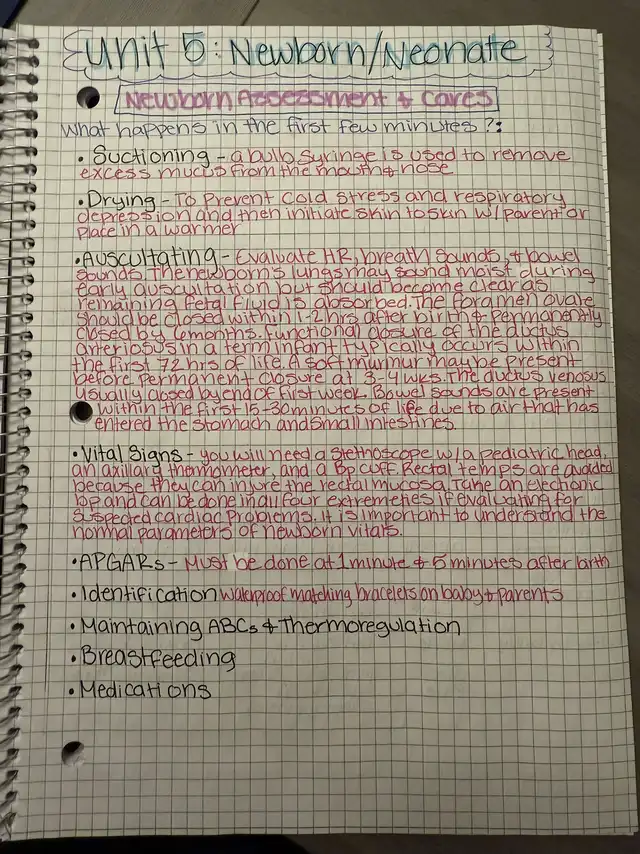 Unit 5: Newborn/Neonate
Newborn Assessment & Cares
What happens in the first few minutes?:
• Suctioning - a bulb syringe is used to remove
excess mucus from the mouth & nose
• Drying - To prevent cold stress and respiratory
depression and then initiate skin to skin w/ parent or
place in a warmer
• Auscultating - Evaluate HR, breath sounds, & bowel
sounds. The newborn's lungs may sound moist during
early auscultation but should become clear as
remaining fetal fluid is absorbed. The foramen ovale
should be closed within 1-2 hrs after birth & permanently
closed by 6 months. Functional closure of the ductus
arteriosus in a term infant typically occurs within
the first 72 hrs of life. A soft murmur may be present
before permanent closure at 3-4 wks. The ductus venosus
usually closed by end of first week. Bowel sounds are present
within the first 15-30 minutes of life due to air that has
entered the stomach and small intestines.
• Vital Signs - you will need a stethoscope w/ a pediatric head,
an axillary thermometer, and a BP cuff. Rectal temps are avoided
because they can injure the rectal mucosa. Take an electronic
bp and can be done in all four extremeties if evaluating for
suspected cardiac problems. It is important to understand the
normal parameters of newborn vitals.
• APGARs - Must be done at 1 minute & 5 minutes after birth
• Identification waterproof matching bracelets on baby & parents
• Maintaining ABCs & Thermoregulation
• Breastfeeding
• Medications